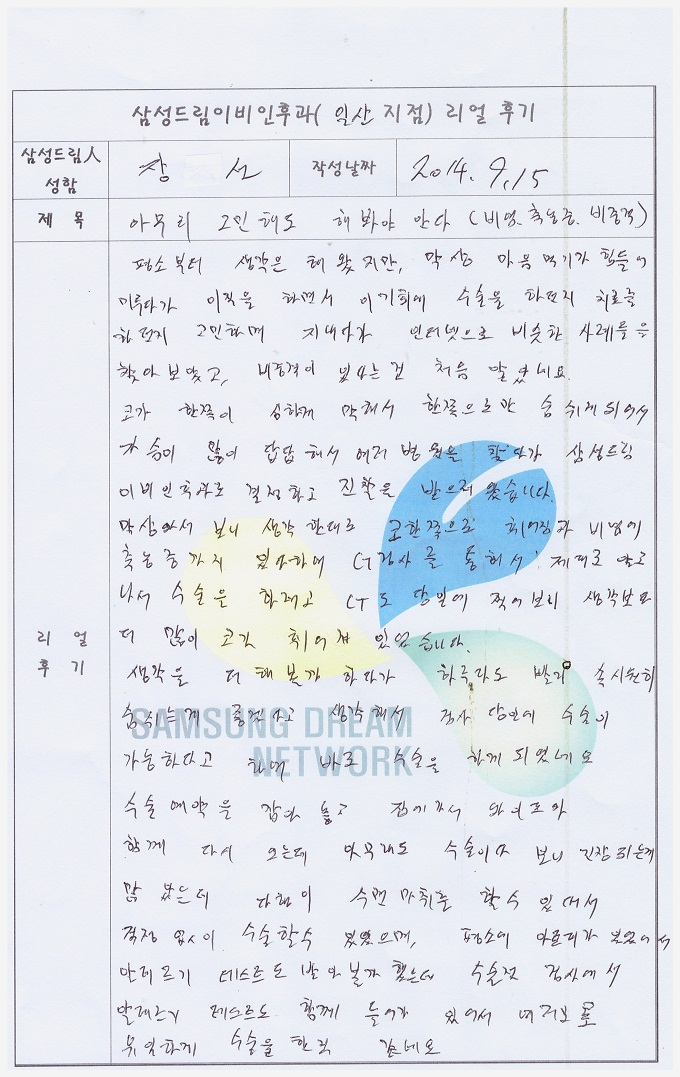 삼성드림이비인후과( 일산 지점) 리얼 후기
삼성드림人 성함
장 선
작성날짜
2014. 9. 15
제 목
아무리 고민해도 해봐야 안다 (비염, 축농증, 비중격)
리 얼 후 기
평소부터 생각은 해 왔지만, 막상 마음 먹기가 힘들어
미루다가 이직을 하면서 이기회에 수술을 하던지 치료를
하던지 고민하며 지내다가 인터넷으로 비슷한 사례들을
찾아 보았고, 비중격이 있다는건 처음 알았네요.
코가 한쪽이 심하게 막혀서 한쪽으로만 숨쉬게 되어서
숨이 많이 답답해서 여러 병원을 찾다가 삼성드림
이비인후과로 결정하고 진찰을 받으러 왔습니다.
막상와서 보니 생각한대로 코한쪽으로 휘어짐과 비염에
축농증까지 있다하여 CT검사를 통해서 제대로 알고
나서 수술은 하려고 CT도 당일에 찍어보니 생각보다
더 많이 코가 휘어져 있었습니다.
생각을 더 해볼까 하다가 하루라도 빨리 속시원히
숨쉬는게 좋겠다고 생각해서 검사 당일에 수술이
가능하다고 하여 바로 수술을 하게 되었네요
수술 예약을 잡아 놓고 집에가서 와이프와
함께 다시 오는데 아무래도 수술이다 보니 긴장 되는게
많았는데 다행이 수면 마취를 할수 있대서
걱정 없이 수술할수 있었으며, 평소에 아토피가 있어서
알레르기 테스트도 받아볼까 했는데 수술전 검사에서
알레르기 테스트도 함께 들어가 있어서 여러모로
유익하게 수술을 한것 같네요
SAMSUNG DREAM
NETWORK